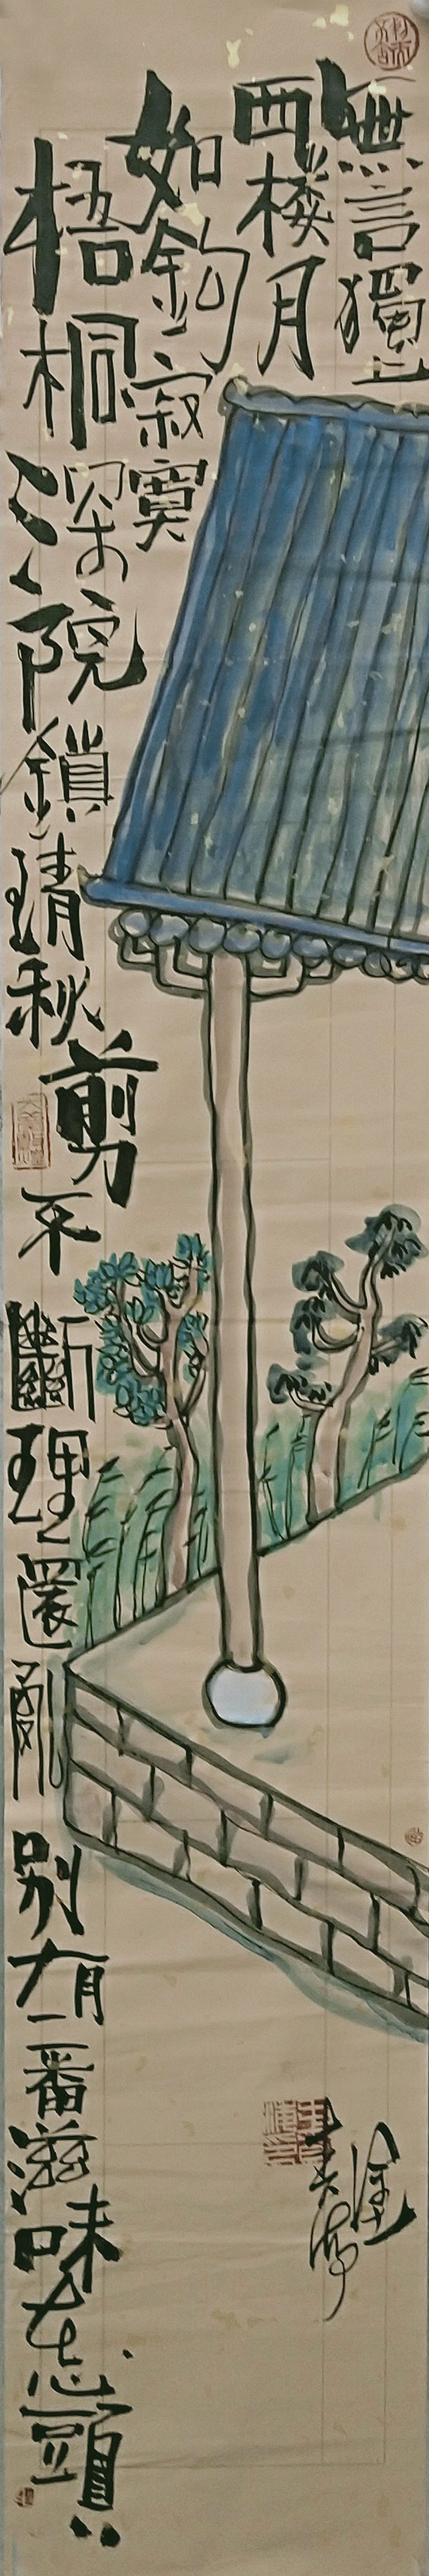 無言獨上
西楼月
如鈎寂寞
梧桐深院鎖清秋
剪不斷理還亂别有一番滋味在心頭